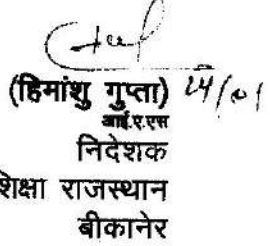 (हिमांशु गुप्ता) 24/01
आई.ए.एस
निदेशक
शिक्षा राजस्थान
बीकानेर